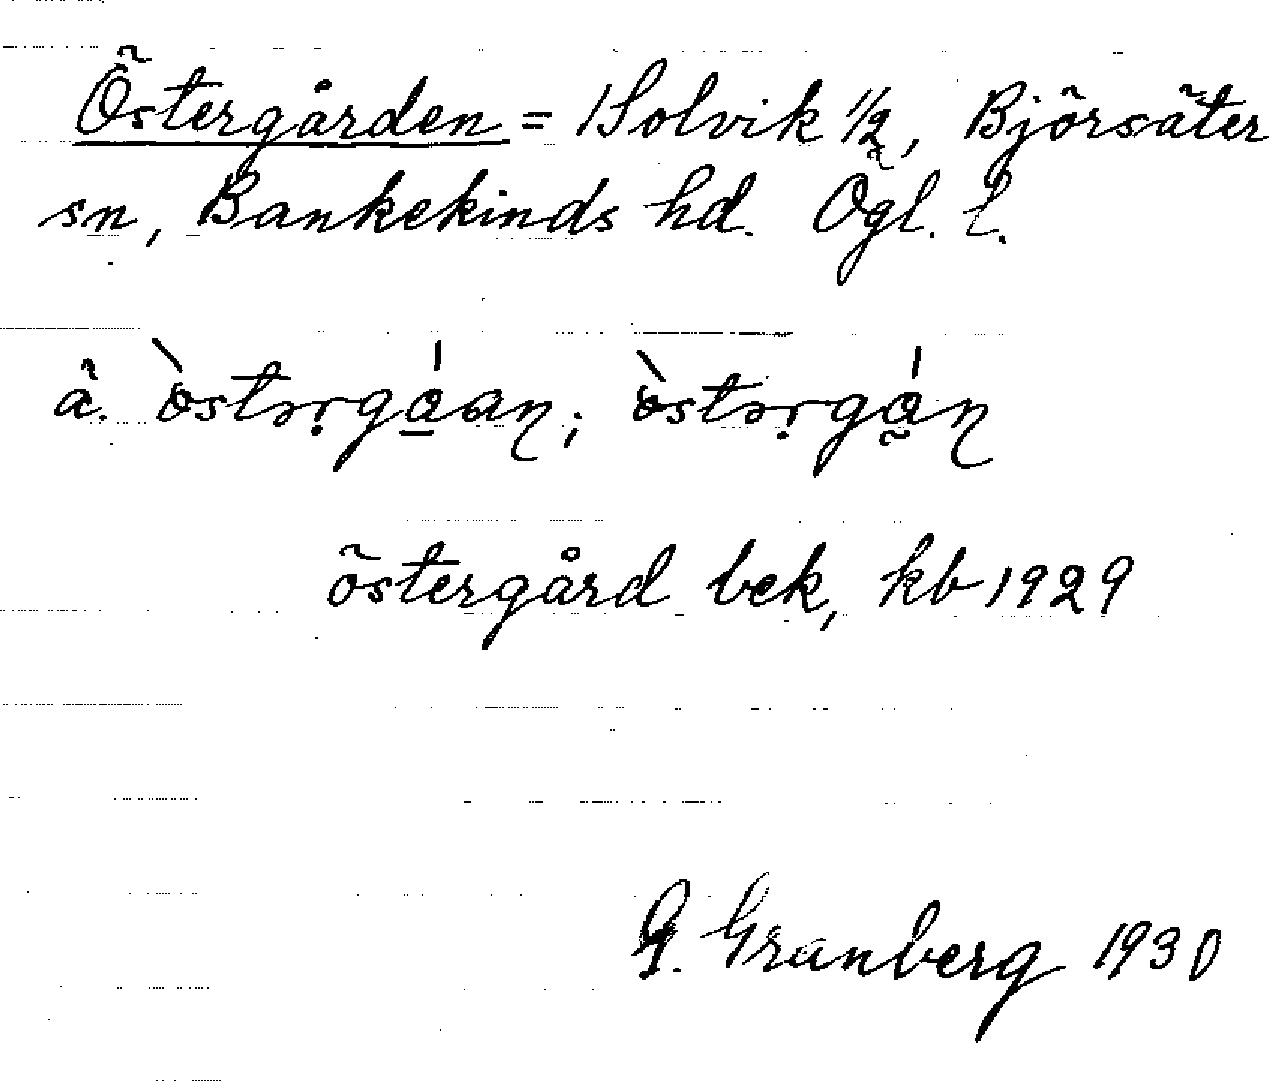 Östergården = Solvik 1/2, Björsäter
sn, Bankekinds hd. Ögl. l.
ä. òstərgáan; òstərgán
östergård bek, kb 1929
G. Granberg 1930